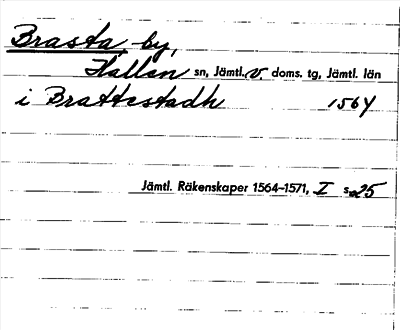 Brasta by,
Hallen sn, Jämtl. v. doms. tg, Jämtl. län
i Brattestadh 1564
Jämtl. Räkenskaper 1564-1571, I s. 25